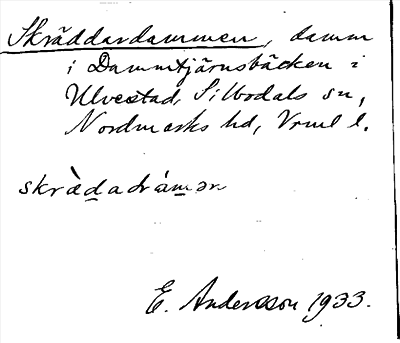 Skräddardammen, damm
i Dammtjärnsbäcken i
Ulvestad, Silbodals sn,
Nordmarks hd, Vrml l.
skrädadåmən
E. Andersson 1933.